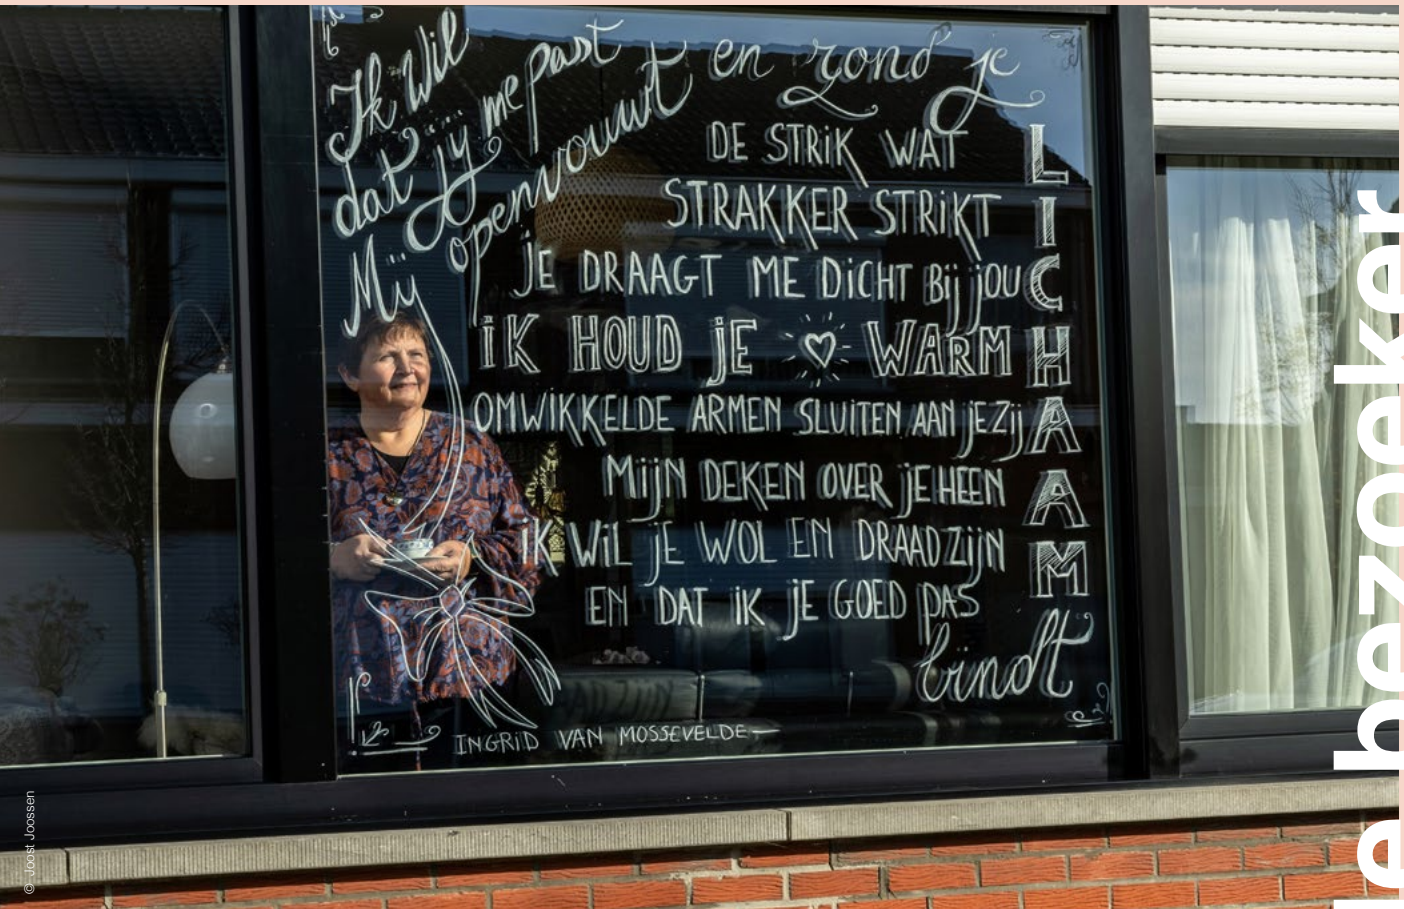 Ik wil
dat jij me past
Mij openvouwt en rond je
LICHAAM
DE STRIK WAT
STRAKKER STRIKT
JE DRAAGT ME DICHT Bij jOU
iK HOUD jE WARM
OMWIKKELDE ARMEN SLUITEN AAN jE Zij
Mijn DEKEN OVER jE HEEN
iK WiL jE WOL EN DRAAD Zijn
EN DAT iK jE GOED PAS
bindt
INGRiD VAN MOSSEVELDE
© Joost Joossen
bezoeker